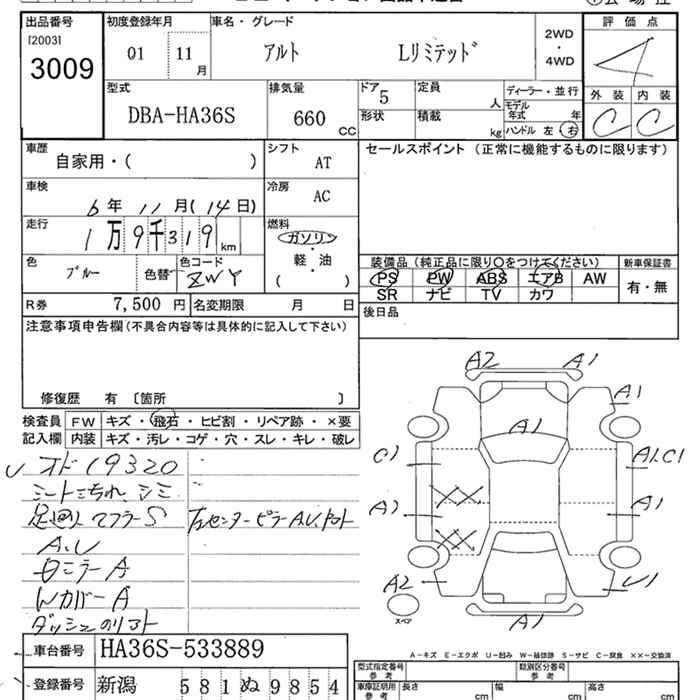 出品番号 初度登録年月 車名・グレード 評価点
[2003] 3009 01 11月 アルト Lリミテッド 2WD・4WD 4
型式 排気量 ドア 定員 ディーラー・並行 外装 内装
DBA-HA36S 660 CC 5 人 モデル年式 年 C C
形状 積載 kg ハンドル 左 右
車歴 シフト セールスポイント (正常に機能するものに限ります)
自家用・( ) AT
車検 冷房
6年 11月(14日) AC
走行 燃料
1万9千319km ガソリン・軽・油 ( )
色 色替 色コード 装備品 (純正品に限り〇をつけてください) 新車保証書
ブルー ZWY PS PW ABS エアB AW 有・無
SR ナビ TV カワ
R券 7,500円 名変期限 月 日 後日品
注意事項申告欄(不具合内容等は具体的に記入して下さい)
修復歴 有 〔箇所 〕
検査員記入欄 FW キズ・飛石・ヒビ割・リペア跡・×要
内装 キズ・汚レ・コゲ・穴・スレ・キレ・破レ
オド19320
シートこちれ シミ
足廻り マフラーS
センターピラーA.U.
A.U
ミラーA
WカバーA
A2 A1
A1 A1
C1 A1.C1
A1 XX A1
XX
A2 U1
スペア A1
A-キズ E-エクボ U-凹み W-補修跡 S-サビ C-腐食 ××-交換済
車台番号 HA36S-533889
型式指定番号 参考 類別区分番号 参考
登録番号 新潟 581 ぬ 9854
車庫証明用 参考 長さ cm 幅 cm 高さ cm